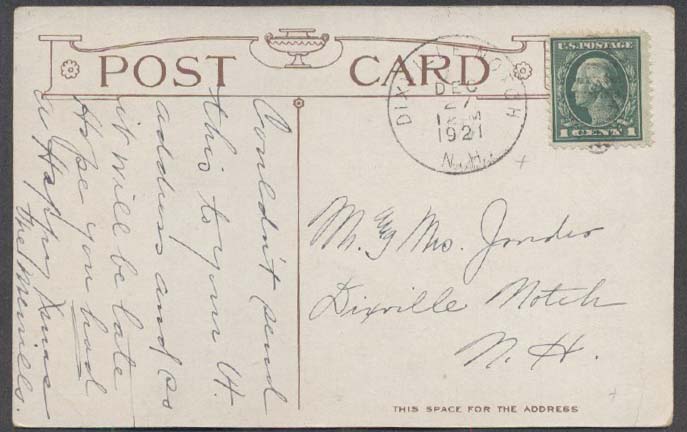 POST CARD
DIXVILLE NOTCH
DEC
27
12 M
1921
N.H.
U.S. POSTAGE
1 CENT 1
Couldn't send
this to your H.
address and so
it will be late
Hope you had
a Happy Xmas
The Merrills.
Mr. & Mrs.
Dixville Notch
N. H.
THIS SPACE FOR THE ADDRESS